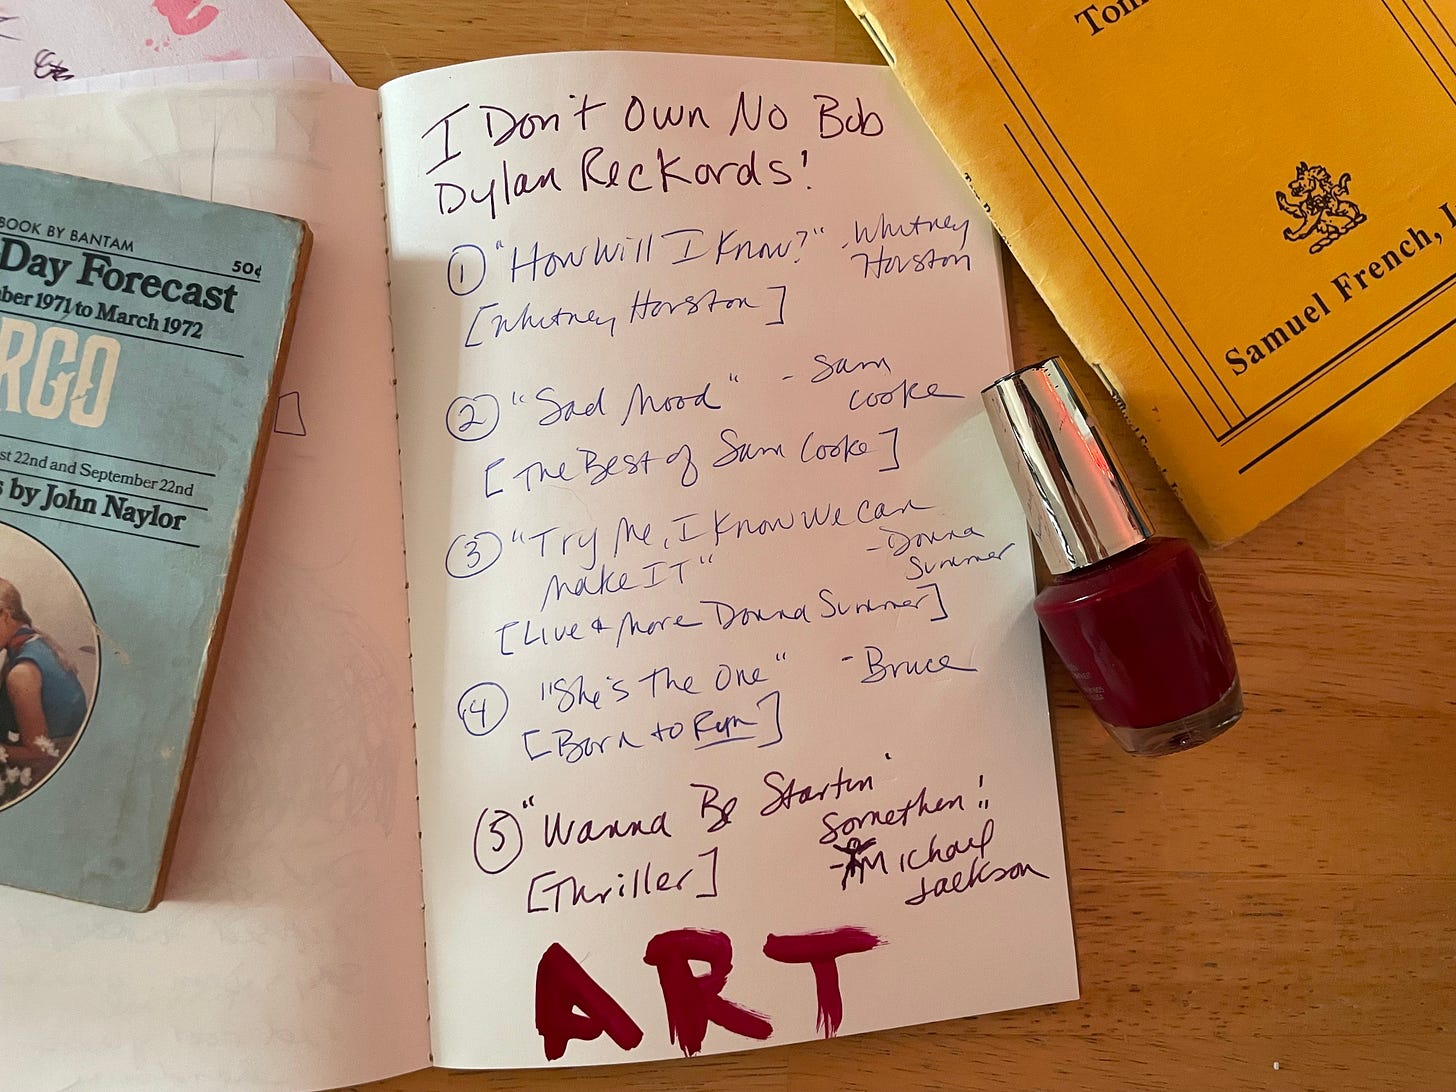 BOOK BY BANTAM
50¢
Day Forecast
ber 1971 to March 1972
RGO
st 22nd and September 22nd
s by John Naylor
I Don't Own No Bob
Dylan Reckords!
① "How Will I Know?" - Whitney
Houston
[Whitney Houston]
② "Sad Mood" - Sam
Cooke
[The Best of Sam Cooke]
③ "Try Me, I Know We Can
Make IT" - Donna
Summer
[Live & More Donna Summer]
④ "She's The One" - Bruce
[Born to Run]
⑤ "Wanna Be Startin'
Somethen!"
- Michael
Jackson
[Thriller]
ART
Tom
Samuel French, I